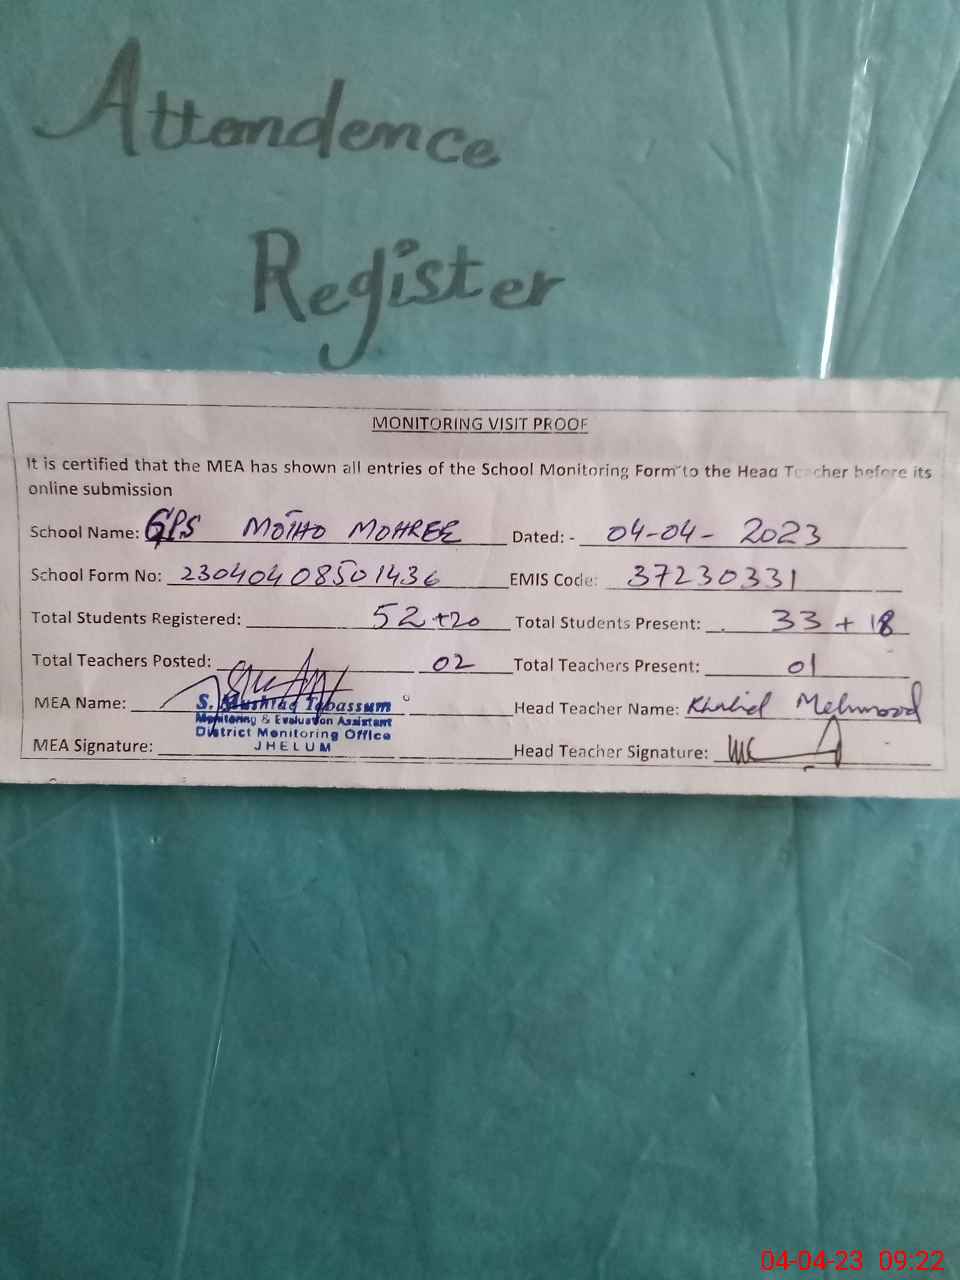 Attendence
Register
MONITORING VISIT PROOF
It is certified that the MEA has shown all entries of the School Monitoring Form to the Head Teacher before its
online submission
School Name: GPS MOTHO MOHREE Dated: - 04-04-2023
School Form No: 23040408501436 EMIS Code: 37230331
Total Students Registered: 52+20 Total Students Present: 33 + 18
Total Teachers Posted: 02 Total Teachers Present: 01
MEA Name: S. Mushtaq Tabassum Head Teacher Name: Khalid Mehmood
Monitoring & Evaluation Assistant
District Monitoring Office
MEA Signature: JHELUM Head Teacher Signature:
04-04-23 09:22